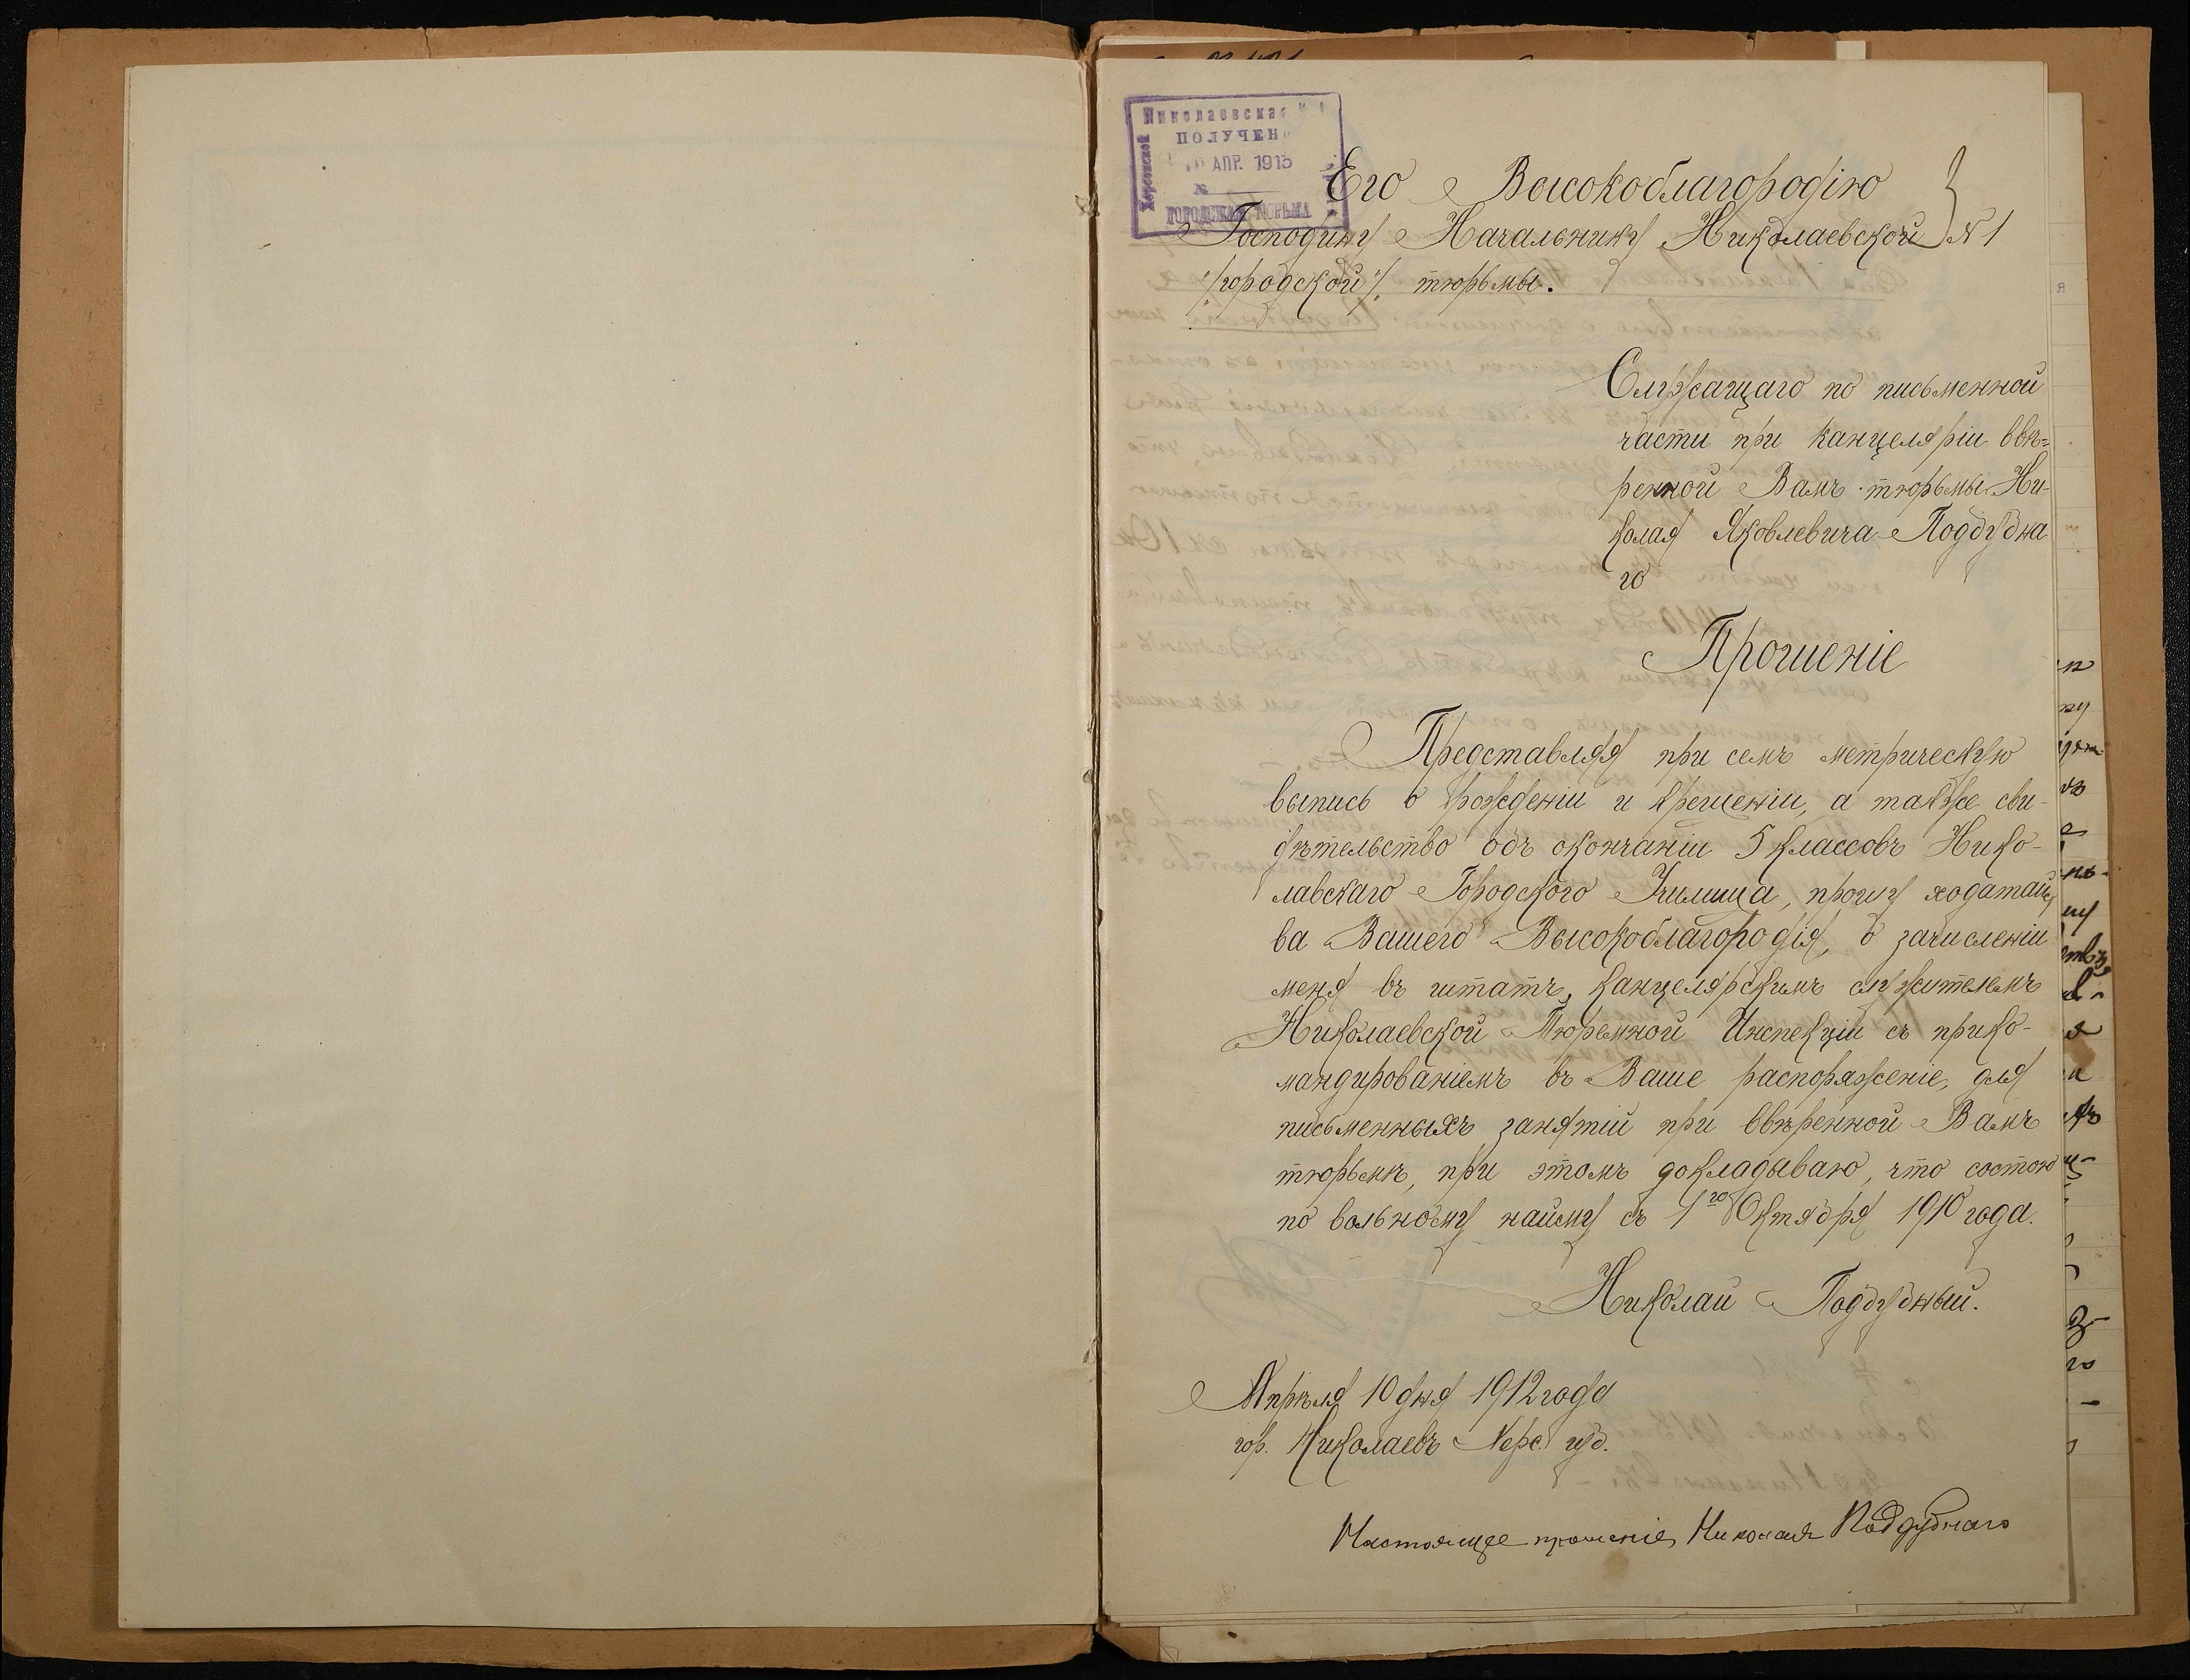 Николаевская № 1
Херсонской
ПОЛУЧЕНО
АПР. 1913
№
ГОРОДСКАЯ ТЮРЬМА
Его Высокоблагородію
Господину Начальнику Николаевской № 1
/городской/ тюрьмы.
Служащаго по письменной
части при канцеляріи ввѣ=
ренной Вамъ тюрьмы Ни-
колая Яковлевича Поддубна
го
Прошеніе
Представляя при семъ метрическую
выпись о рожденіи и крещеніи, а также сви-
дѣтельство объ окончаніи 5 классовъ Нико-
лавскаго Городского Училища, прошу ходатайс
ва Вашего Высокоблагородія, о зачисленіи
меня въ штатъ, канцелярскимъ служителемъ
Николаевской Тюремной Инспекціи съ прико-
мандированіемъ въ Ваше распоряженіе, для
письменныхъ занятій при ввѣренной Вамъ
тюрьмѣ, при этомъ докладываю, что состою
по вольному найму съ 1го Октября 1910 года.
Николай Поддубный.
Апрѣля 10 дня 1912 года
гор. Николаевъ Херс. губ.
Настоящее прошеніе Николая Поддубнаго